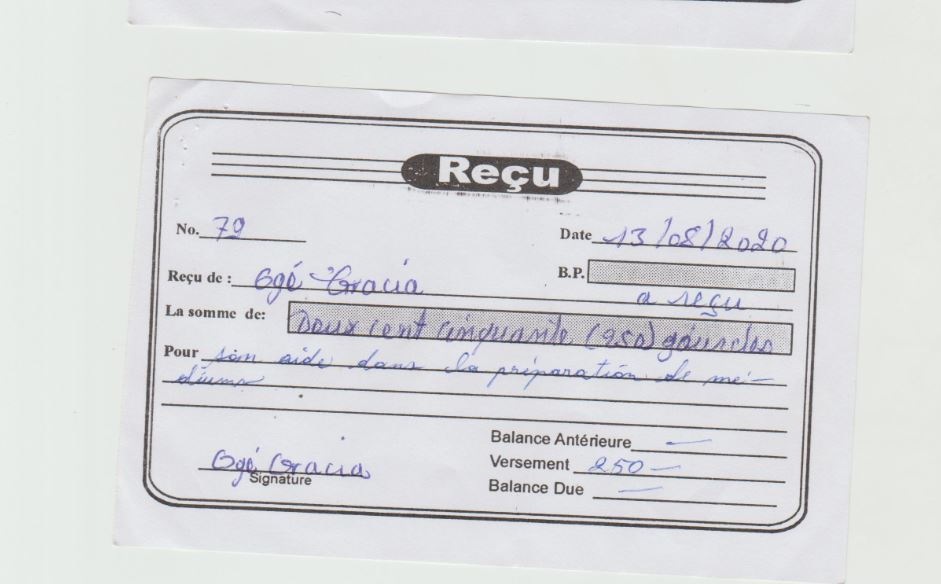 Reçu
No. 79 Date 13/08/2020
Reçu de : Ogé Gracia B.P.
a reçu
La somme de: Deux cent cinquante (250) gourdes
Pour son aide dans la préparation de mé-
diums
Balance Antérieure —
Ogé Gracia Versement 250 —
Signature Balance Due —